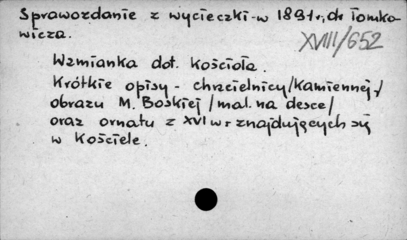 Sprawozdanie z wycieczki w 1891 r, dr Tomko-
wicza.
XVIII/652
Wzmianka dot. Kościoła.
Krótkie opisy - chrzcielnicy /kamiennej/
obrazu M. Boskiej /mal. na desce/
oraz ornatu z XVI w. znajdujących się
w Kościele.